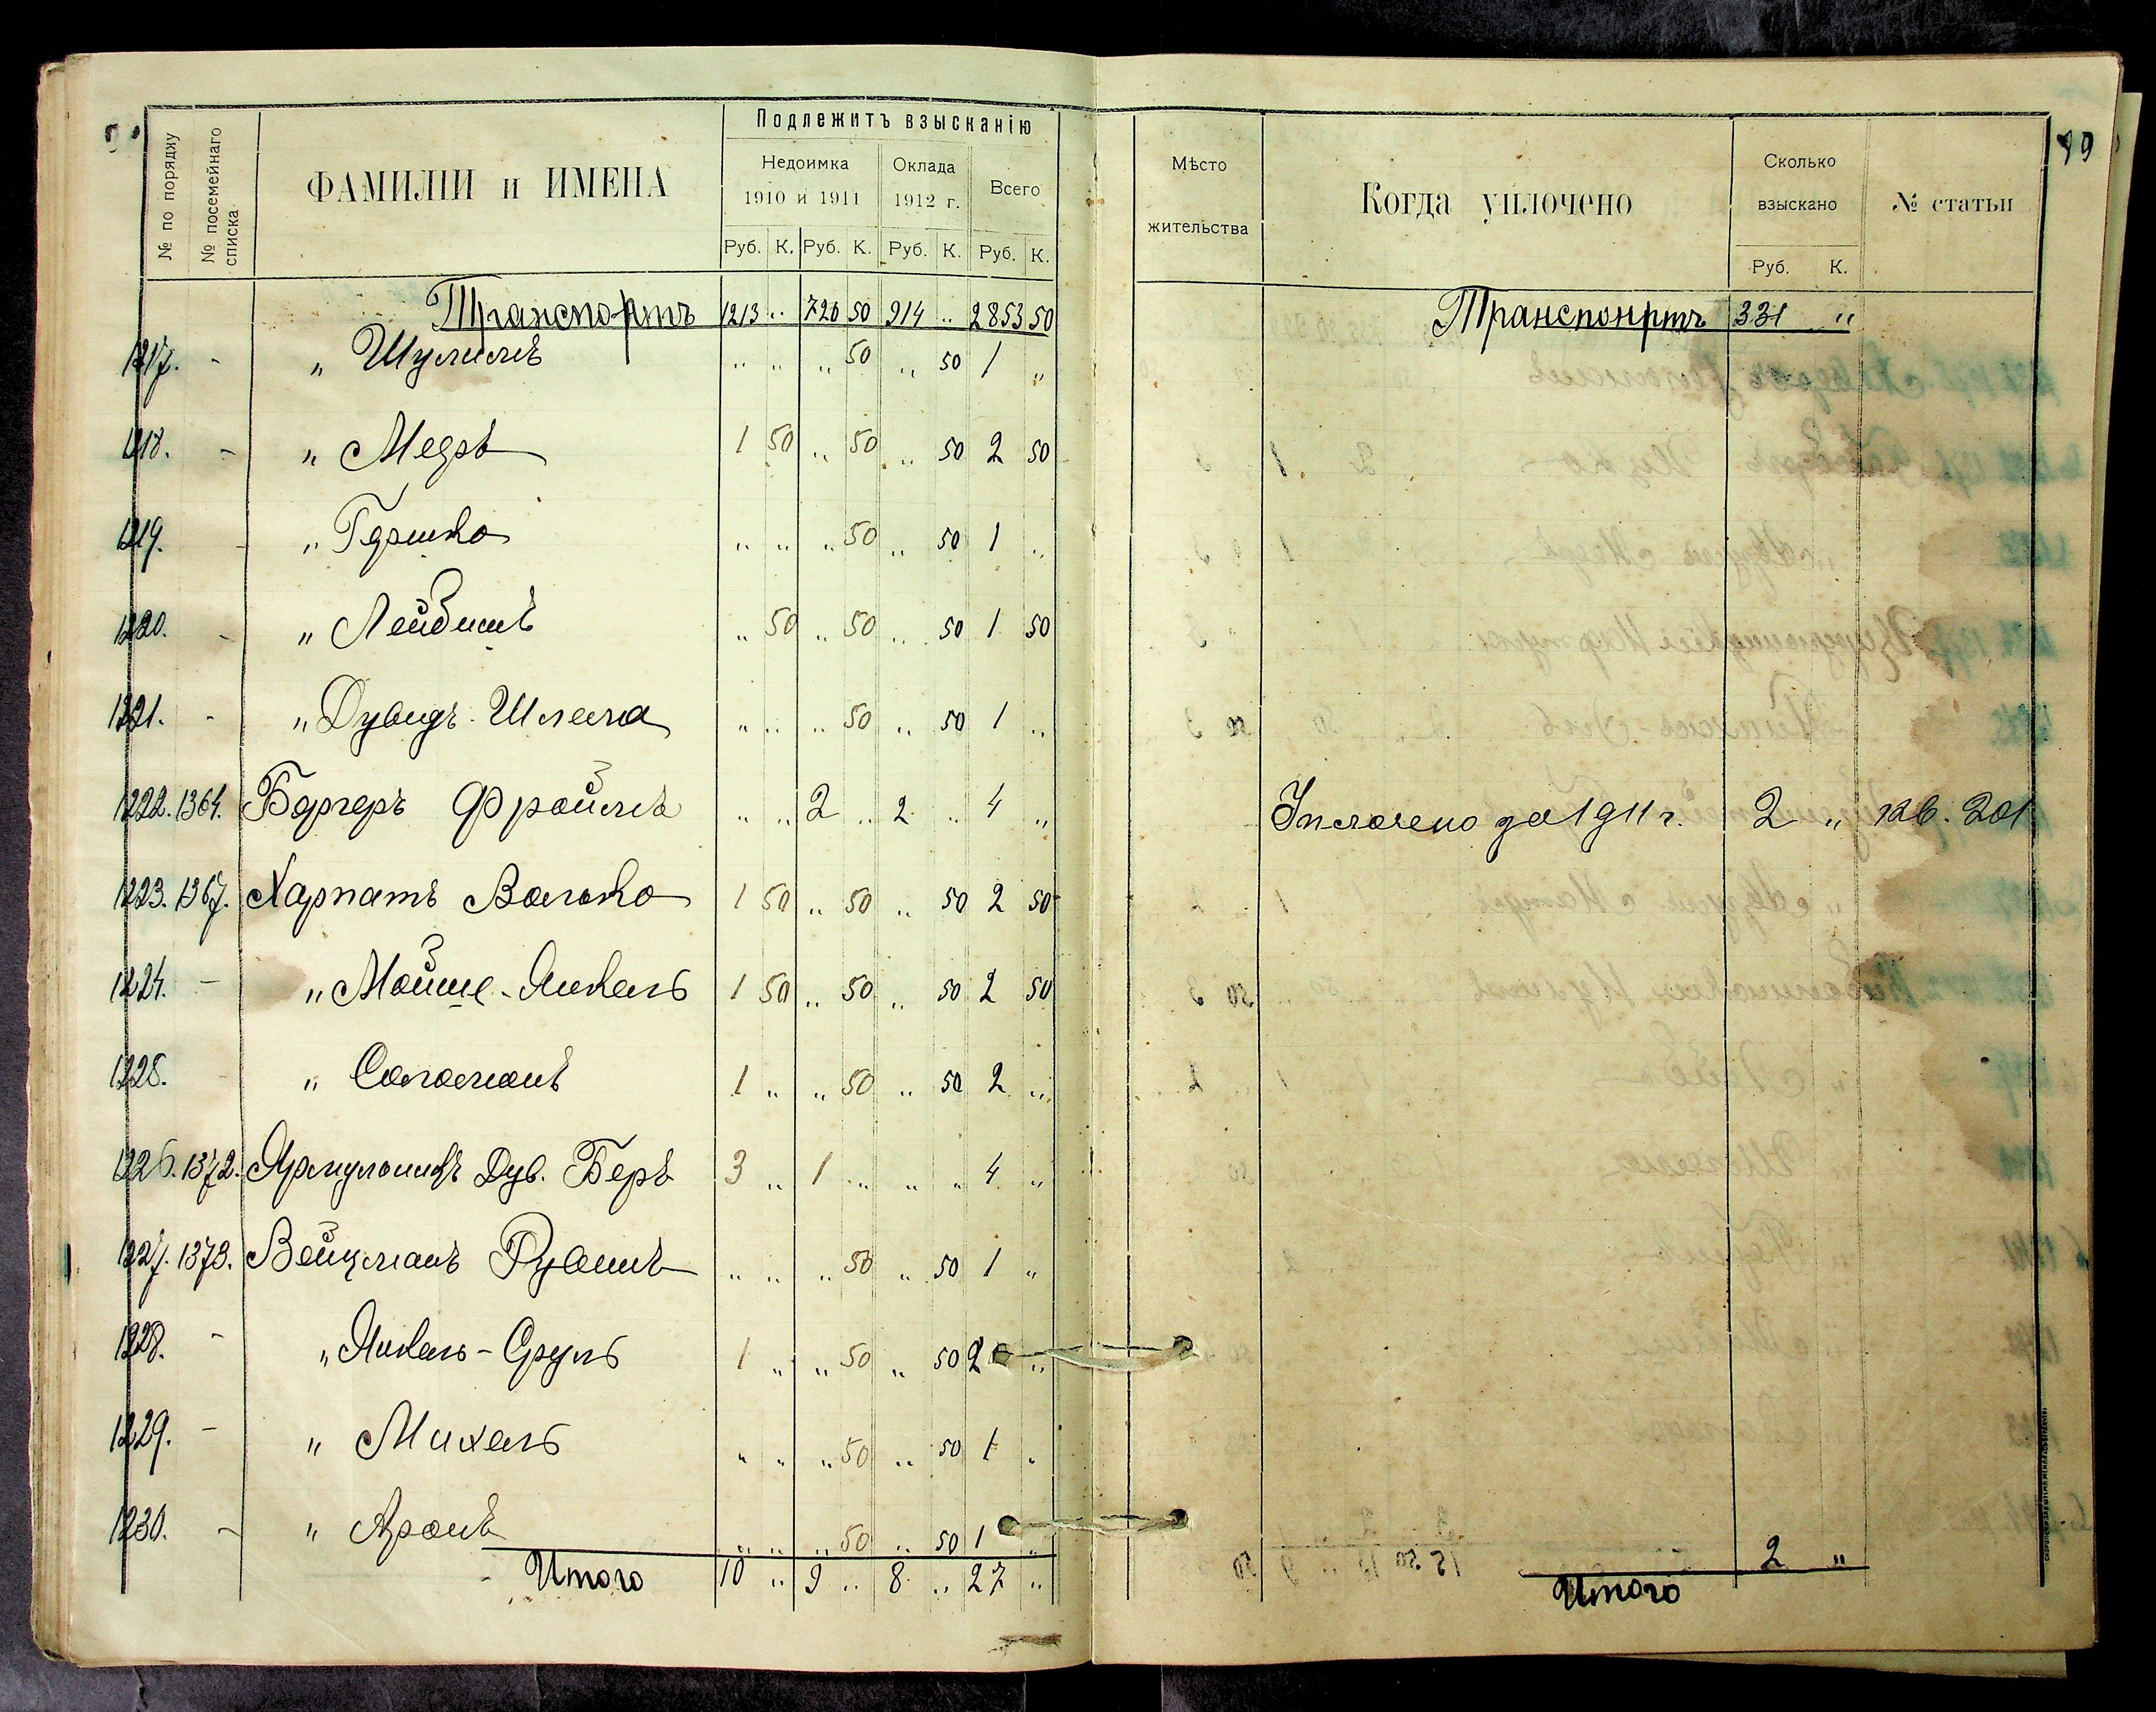 № по порядку
№ посемейнаго списка
ФАМИЛІИ и ИМЕНА
Подлежитъ взысканію
Недоимка
1910 и 1911
Оклада
1912 г.
Всего
Руб. К. Руб. К. Руб. К. Руб. К.
Транспортъ 1213 " 726 50 914 " 2853 50
1217. - " Шулимъ " " " 50 " 50 1 "
1218. - " Мееръ 1 50 " 50 " 50 2 50
1219. - " Гершко " " " 50 " 50 1 "
1220. - " Лейбишъ " 50 " 50 " 50 1 50
1221. - " Дувидъ-Шлема " " " 50 " 50 1 "
1222. 1364. Бергеръ Фроимъ " " 2 " 2 " 4 "
1223. 1367. Харпатъ Волько 1 50 " 50 " 50 2 50
1224. - " Мойше-Янкель 1 50 " 50 " 50 2 50
1225. " Соломонъ 1 " " 50 " 50 2 "
1226. 1372. Дув. Беръ 3 " 1 " " " 4 "
1227. 1373. Вейцманъ Рувинъ " " " 50 " 50 1 "
1228. - " Янкель-Сруль 1 " " 50 " 50 2 "
1229. - " Михель " " " 50 " 50 1 "
1230. - " Аронъ " " " 50 " 50 1 "
Итого 10 " 9 " 8 " 27 "
Мѣсто
жительства
Когда уплочено
Сколько
взыскано
Руб. К.
№ статьи
Транспонртъ 331 "
Уплочено за 1911 г. 2 " кв. 201
2 "
Итого